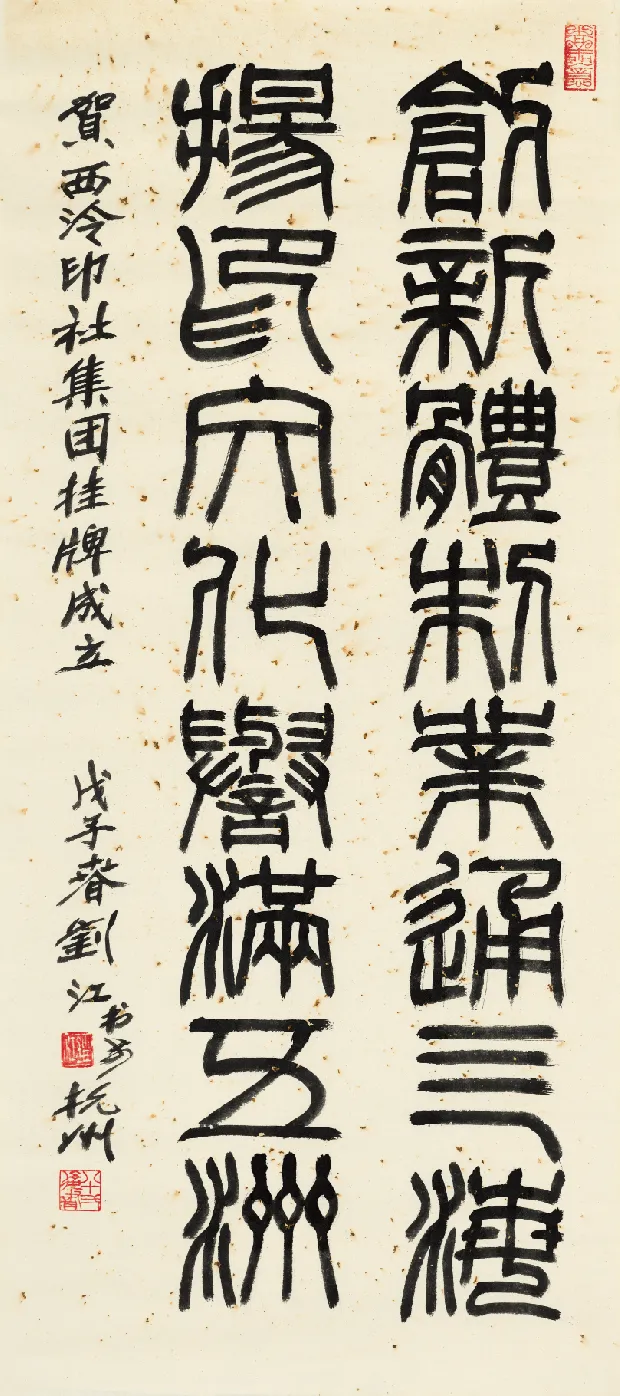 創新體制業通四海
揚印文化譽滿五洲
賀西泠印社集团挂牌成立 戊子春劉江书於杭州